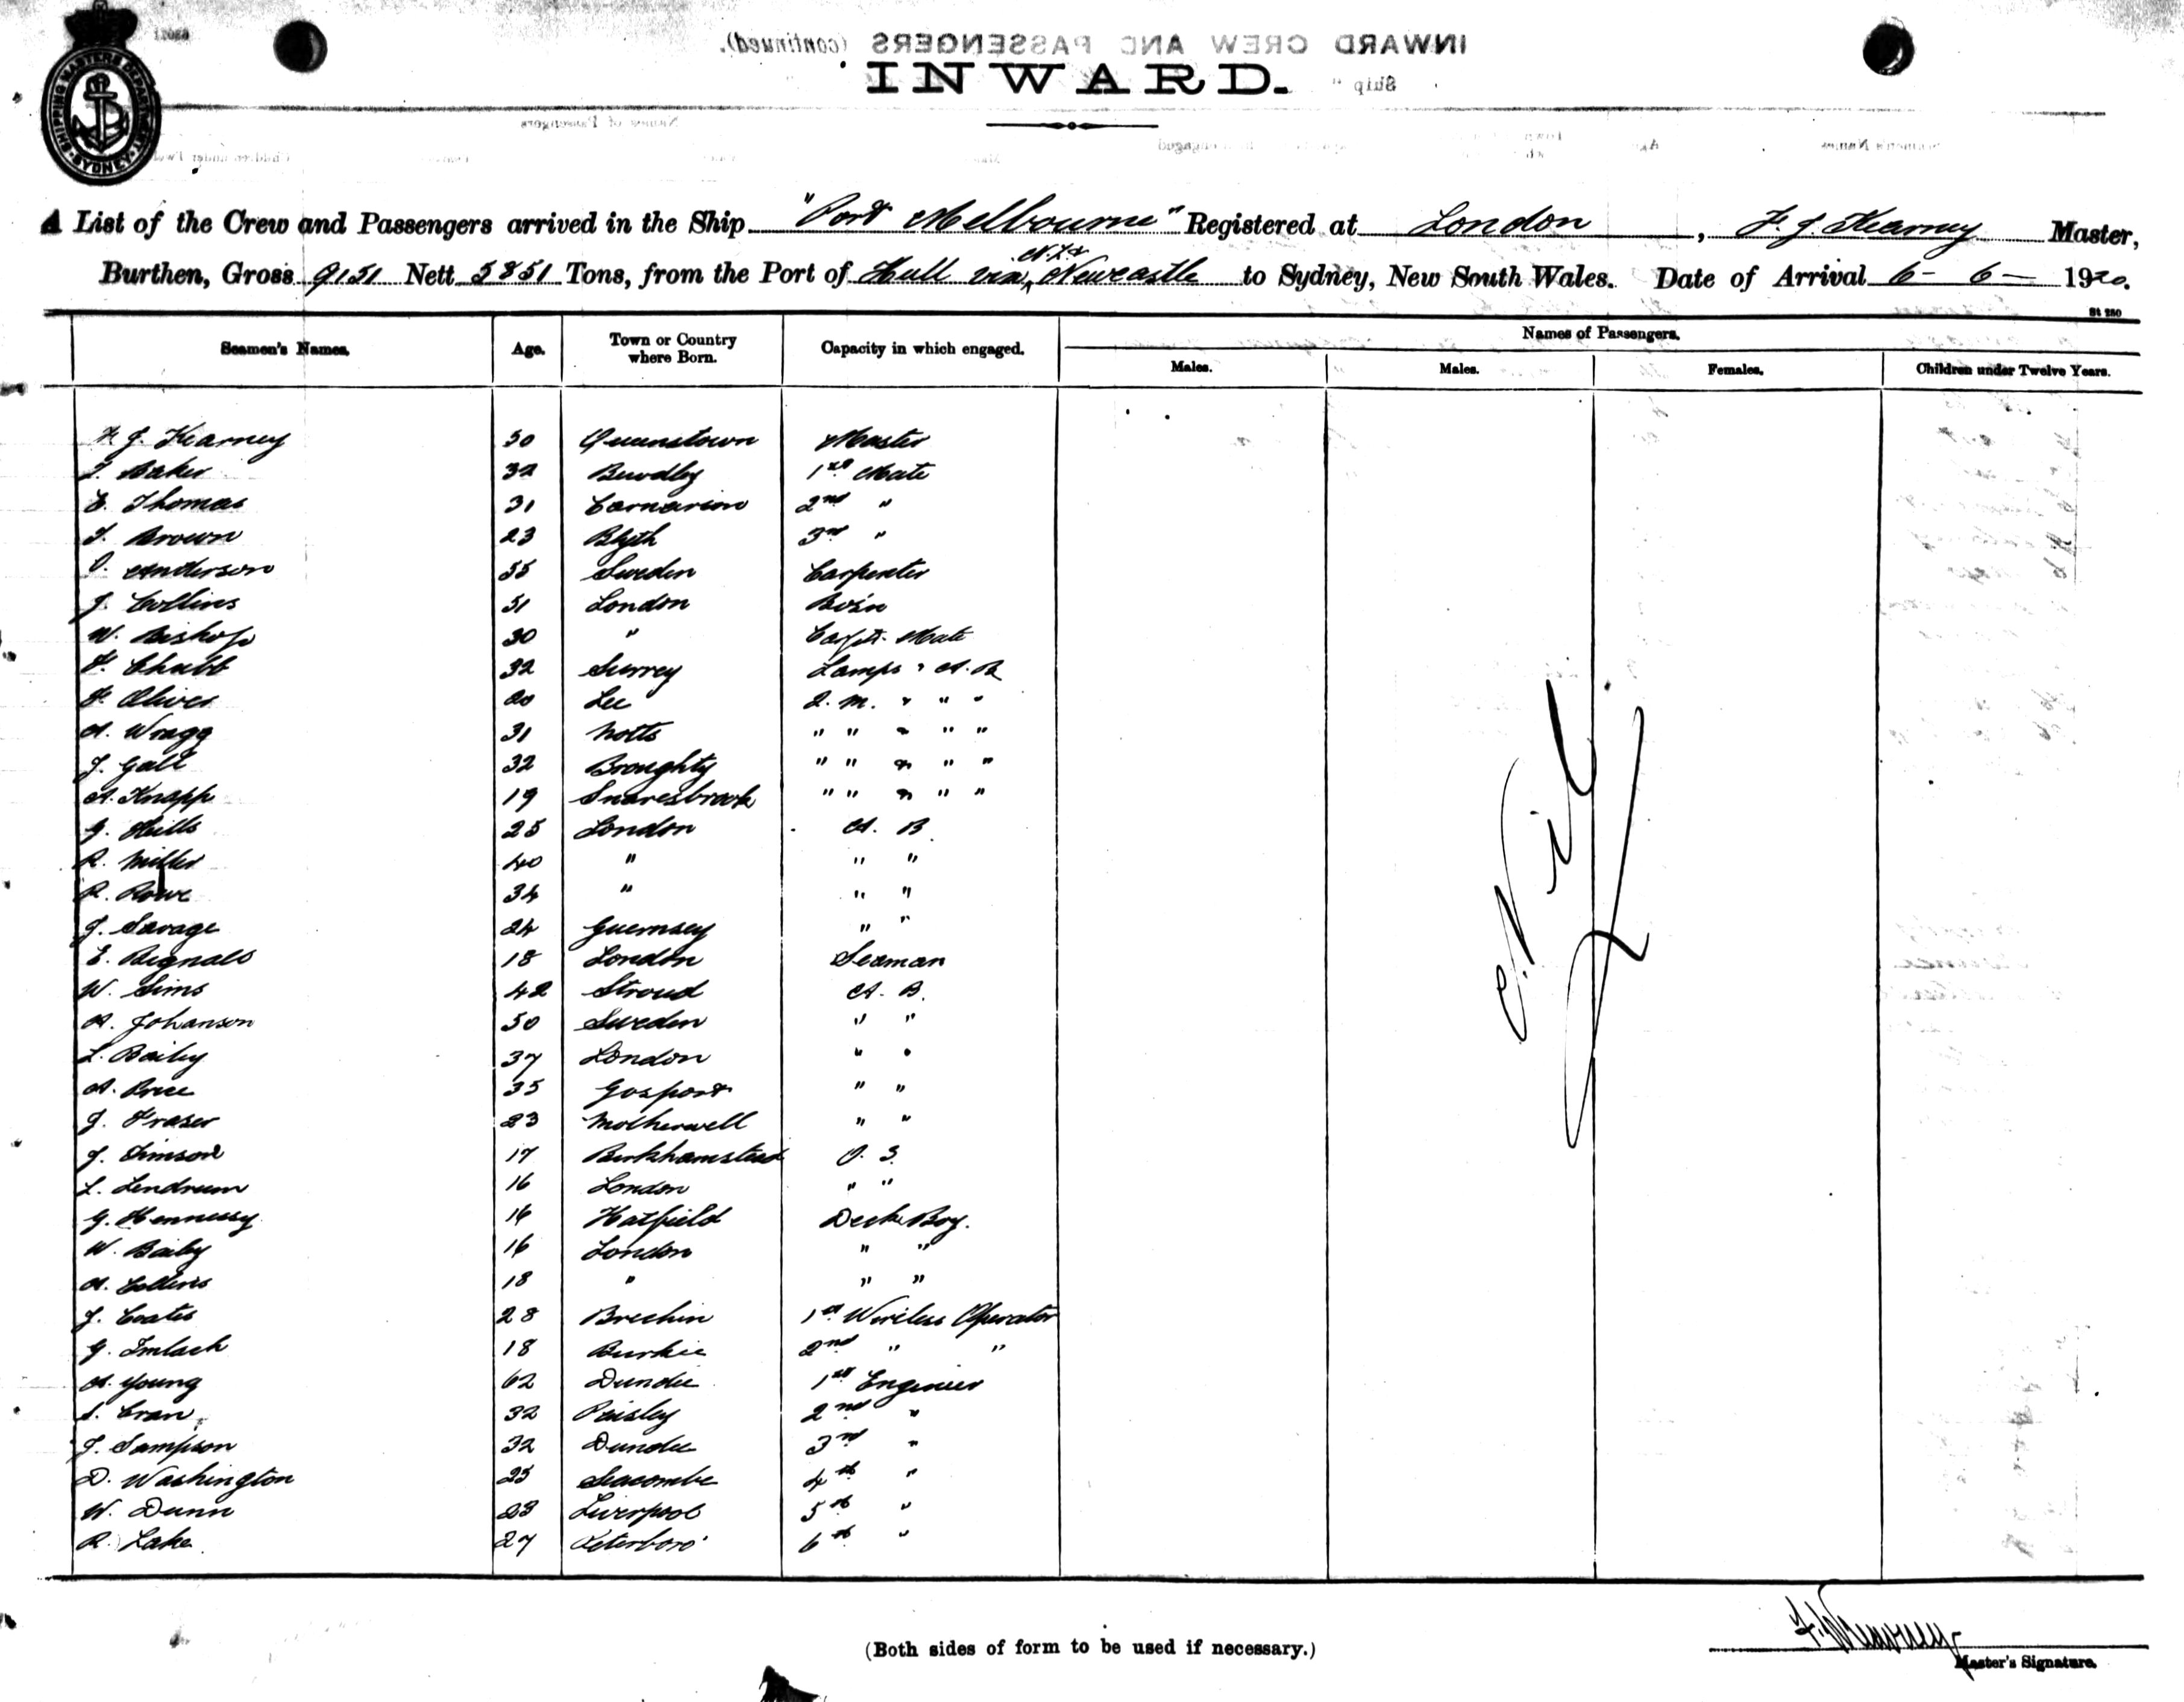 SHIPPING MASTERS DEPARTMENT
SYDNEY
INWARD CREW AND PASSENGERS (continued).
INWARD.
Ship "
A List of the Crew and Passengers arrived in the Ship "Port Melbourne" Registered at London, F. J. Kearney Master,
Burthen, Gross 9151 Nett 5851 Tons, from the Port of Hull via N.Z. & Newcastle to Sydney, New South Wales. Date of Arrival 6 - 6 - 1920.
St 280
Seamen's Names. Age. Town or Country where Born. Capacity in which engaged. Names of Passengers.
Males. Males. Females. Children under Twelve Years.
F. J. Kearney 50 Queenstown Master
Baker 32 Bewdley 1st Mate
E. Thomas 31 Carnarvon 2nd "
Brown 23 Blyth 3rd "
Anderson 55 Sweden Carpenter
J. Collins 51 London Bos'n
W. Bishop 30 " Carptr. Mate
F. Chubb 32 Surrey Lamps & A. B
F. Oliver 20 Lee Q. M. & " "
A. Wragg 31 Notts " " " " "
J. Gall 32 Broughty " " & " "
A. Knapp 19 Snaresbrook " " & " "
G. Hills 25 London A. B.
R. Miller 40 " " "
R. Rowe 34 " " "
J. Savage 24 Guernsey " "
E. Bignall 18 London Seaman
W. Sims 42 Stroud A. B.
A. Johanson 50 Sweden " "
L. Bailey 37 London " "
A. Price 35 Gosport " "
J. Fraser 23 Motherwell " "
J. Simson 17 Berkhamstead O. S.
L. Lendrum 16 London " "
G. Hennessy 16 Hatfield Deck Boy.
W. Baily 16 London " "
A. Collins 18 " " "
J. Coates 28 Brechin 1st Wireless Operator
G. Imlach 18 2nd " "
A. Young 62 Dundee 1st Engineer
Cran 32 Paisley 2nd "
J. Sampson 32 Dundee 3rd "
D. Washington 25 Seacombe 4th "
W. Dunn 23 Liverpool 5th "
R. Lake 27 Peterboro' 6th "
Nil
(Both sides of form to be used if necessary.)
Master's Signature.